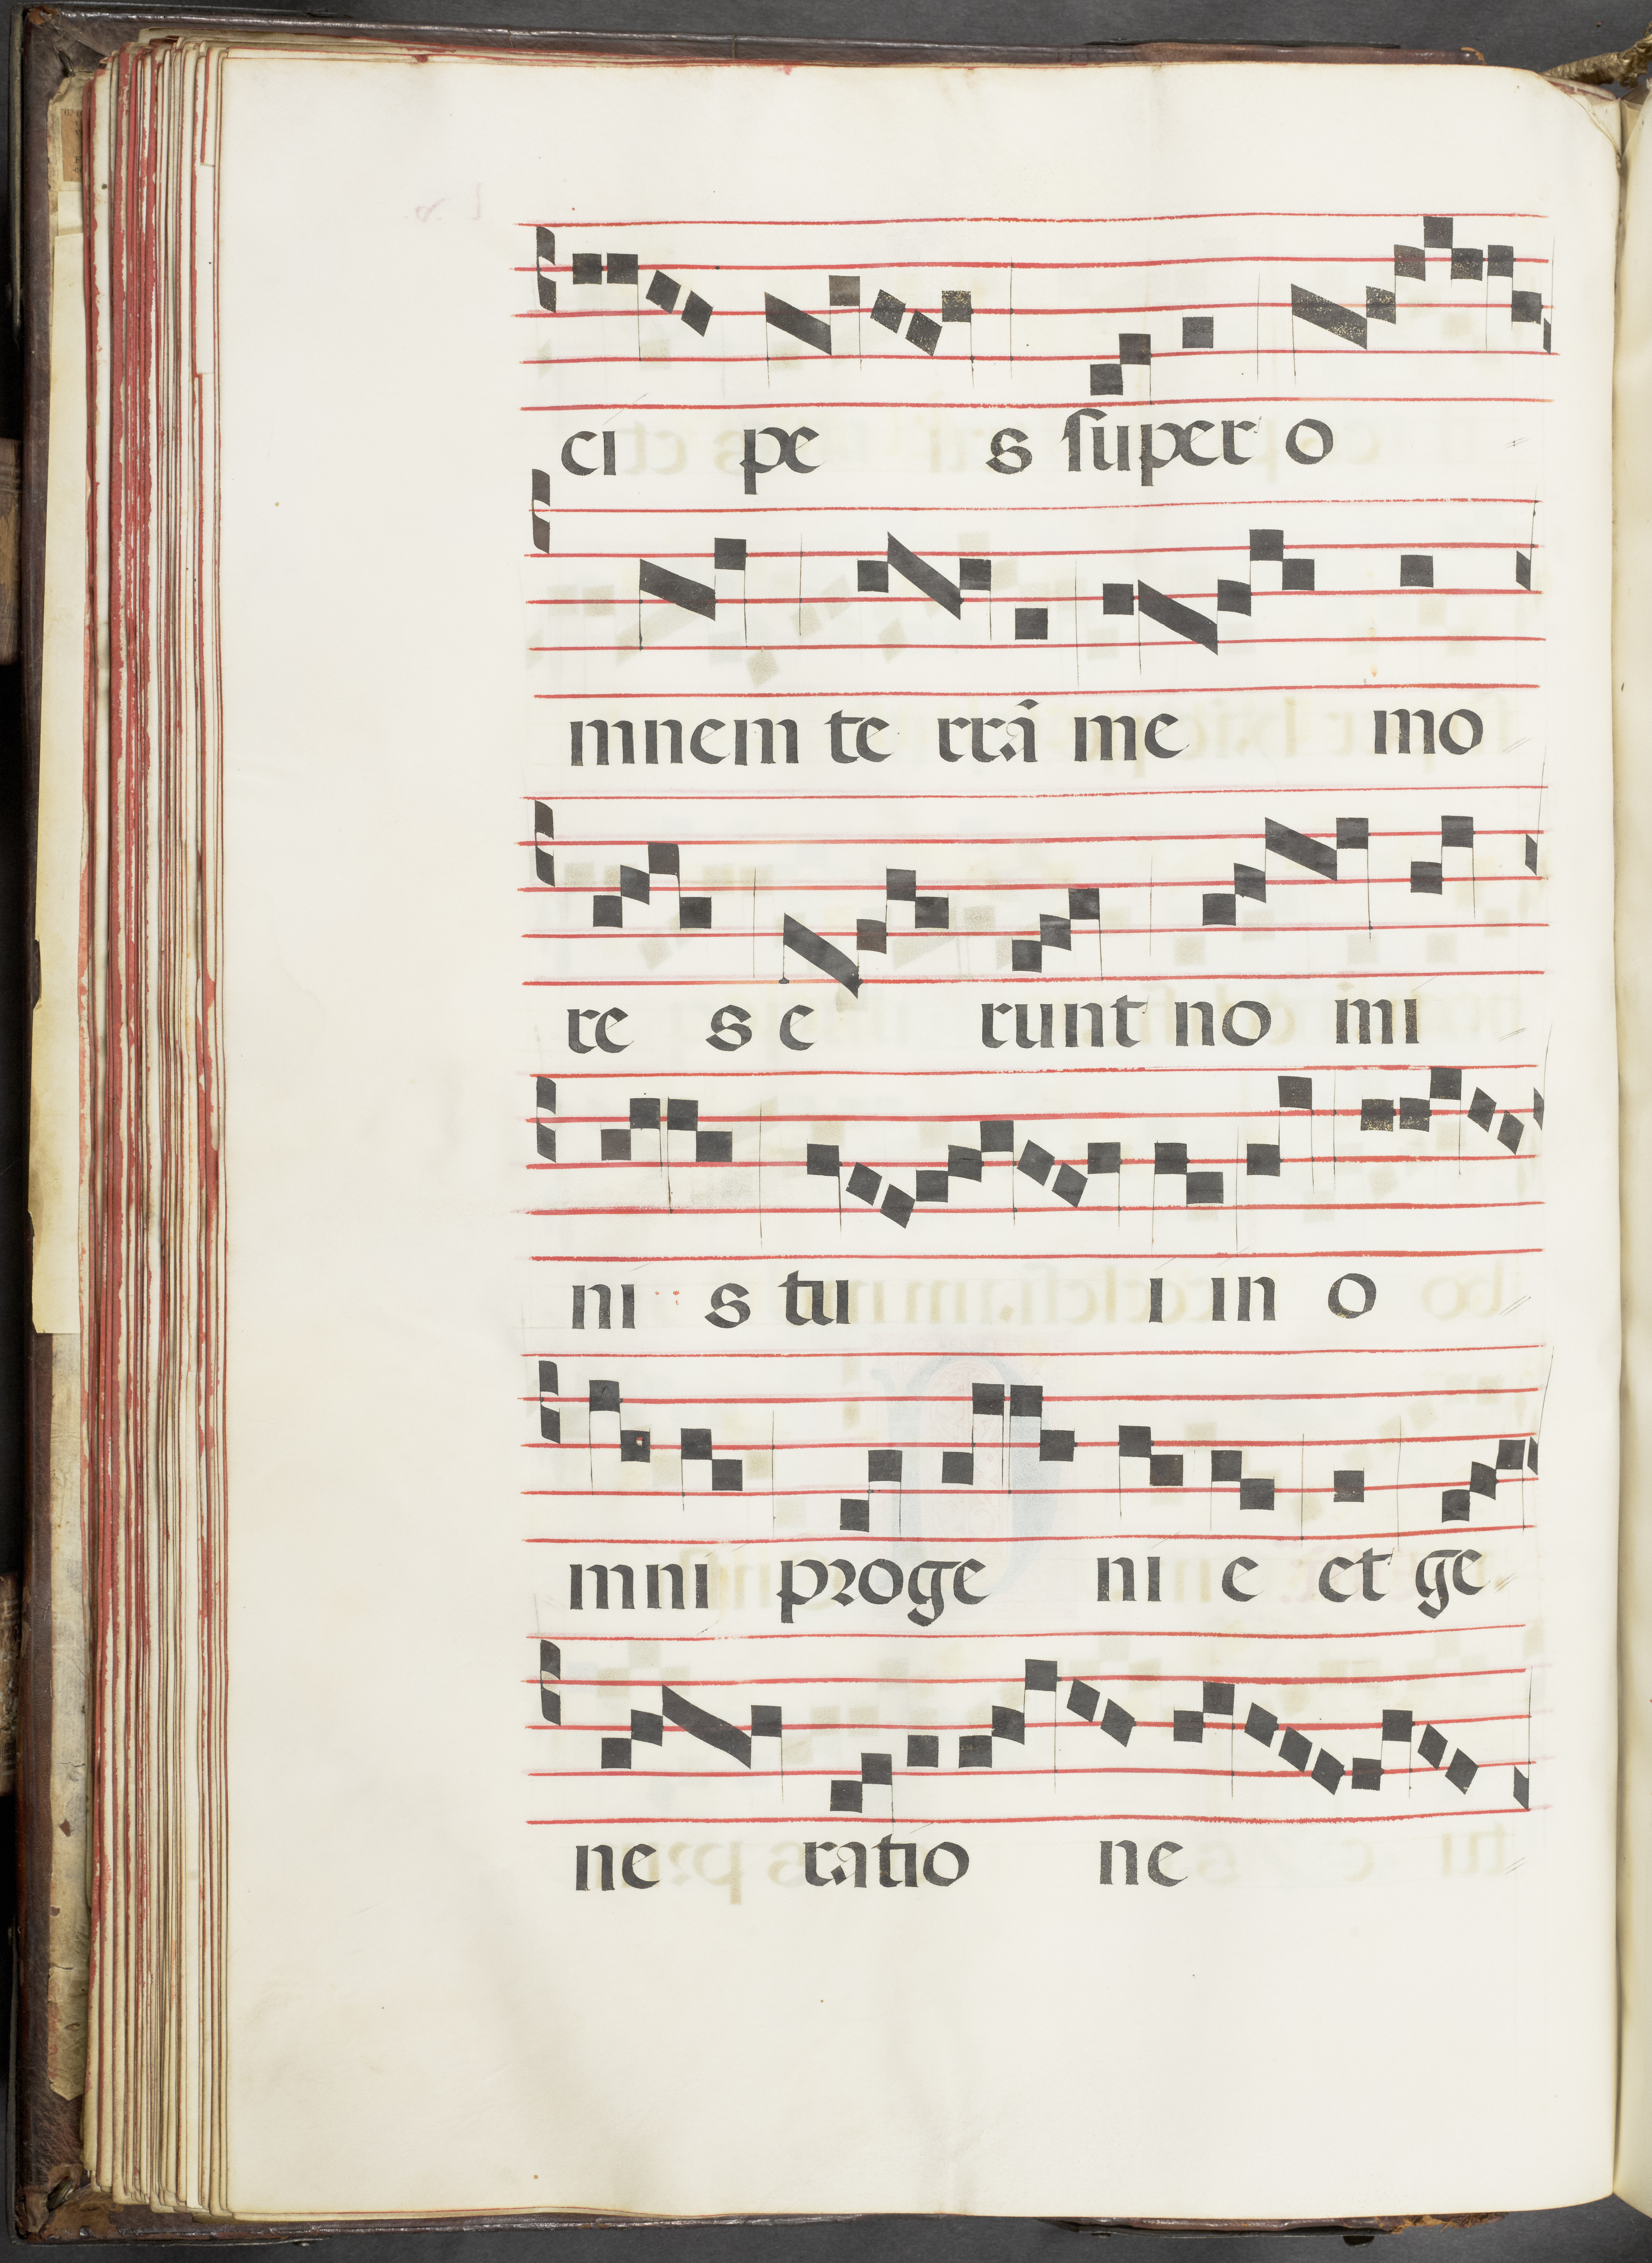 ci pe s ſuper o
mnem te rrã me mo
re s e runt no mi
ni s tu i in o
mni proge ni e et ge
ne ratio ne